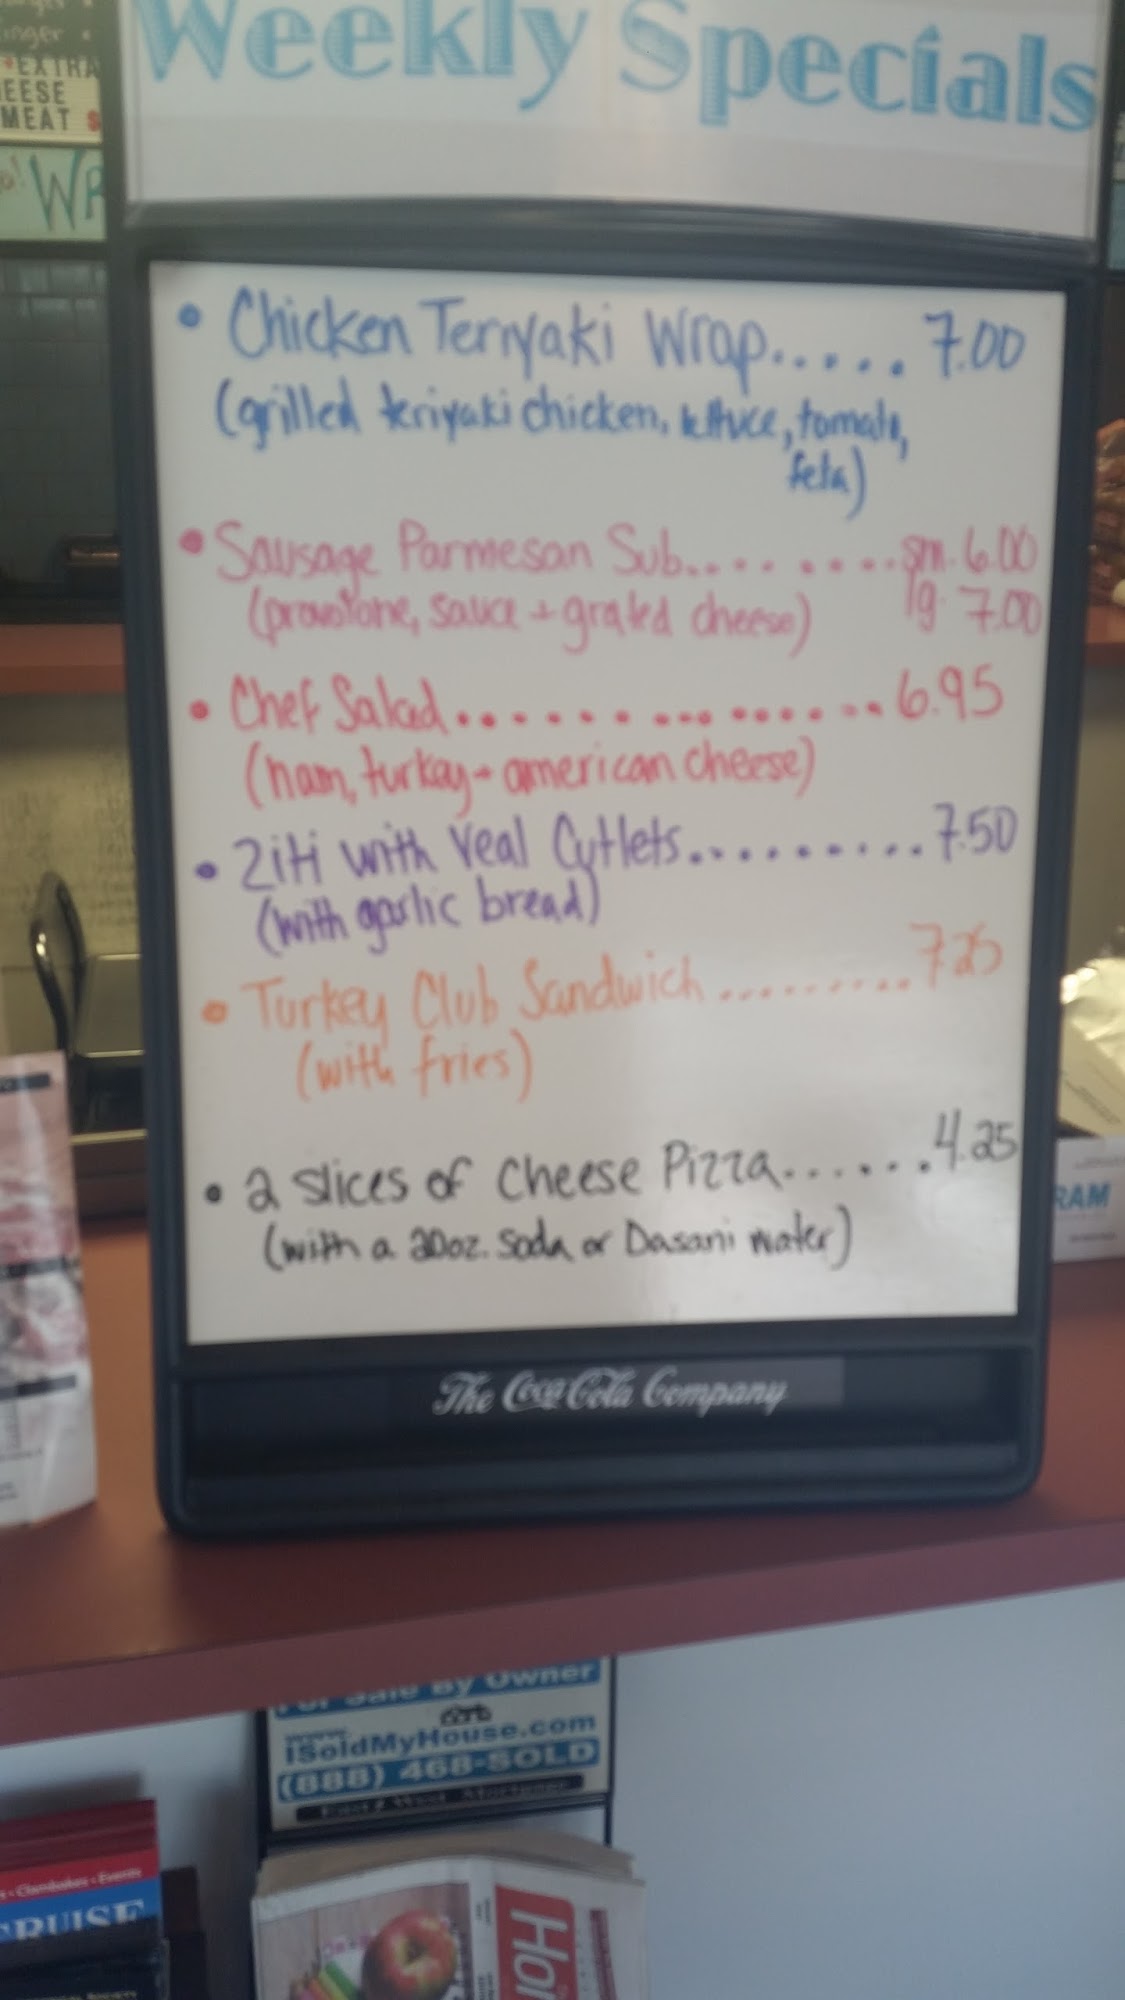 Weekly Specials
EXTRA
MEAT
• Chicken Teriyaki Wrap..... 7.00
(grilled teriyaki chicken, lettuce, tomato,
feta)
• Sausage Parmesan Sub........sm. 6.00
(provolone, sauce + grated cheese) lg. 7.00
• Chef Salad............... 6.95
(ham, turkey + american cheese)
• Ziti with Veal Cutlets......... 7.50
(with garlic bread)
• Turkey Club Sandwich......... 7.25
(with fries)
• 2 slices of Cheese Pizza......4.25
(with a 20oz. soda or Dasani water)
The Coca-Cola Company
For Sale By Owner
www.
iSoldMyHouse.com
(888) 468-SOLD
East West Mortgage
Clambakes • Events